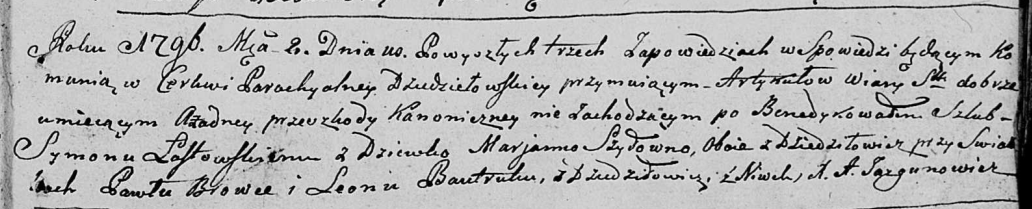 Roku 1796. Mca 2. Dnia 10. Powyszłych trzech Zapowiedziach w Spowiedzi będącym Ko
munią w Cerkwi Parachyalney Dziedziełowskiey przymuiącym Artykułow Wiary Stey dobrze
umieiącym żadney przeszkody Kanoniczney nie zachodzącym po Benedykowałem Szlub
Symonu Łastowskiemu z Dziewką Marjanną Szydowną, Oboie z Dziedziłowicz przy Swiad
kach Pawłu Browce i Leonu Bautruku, z Dziedziłowicz, z Niwek, X. A. Jazgunowicz